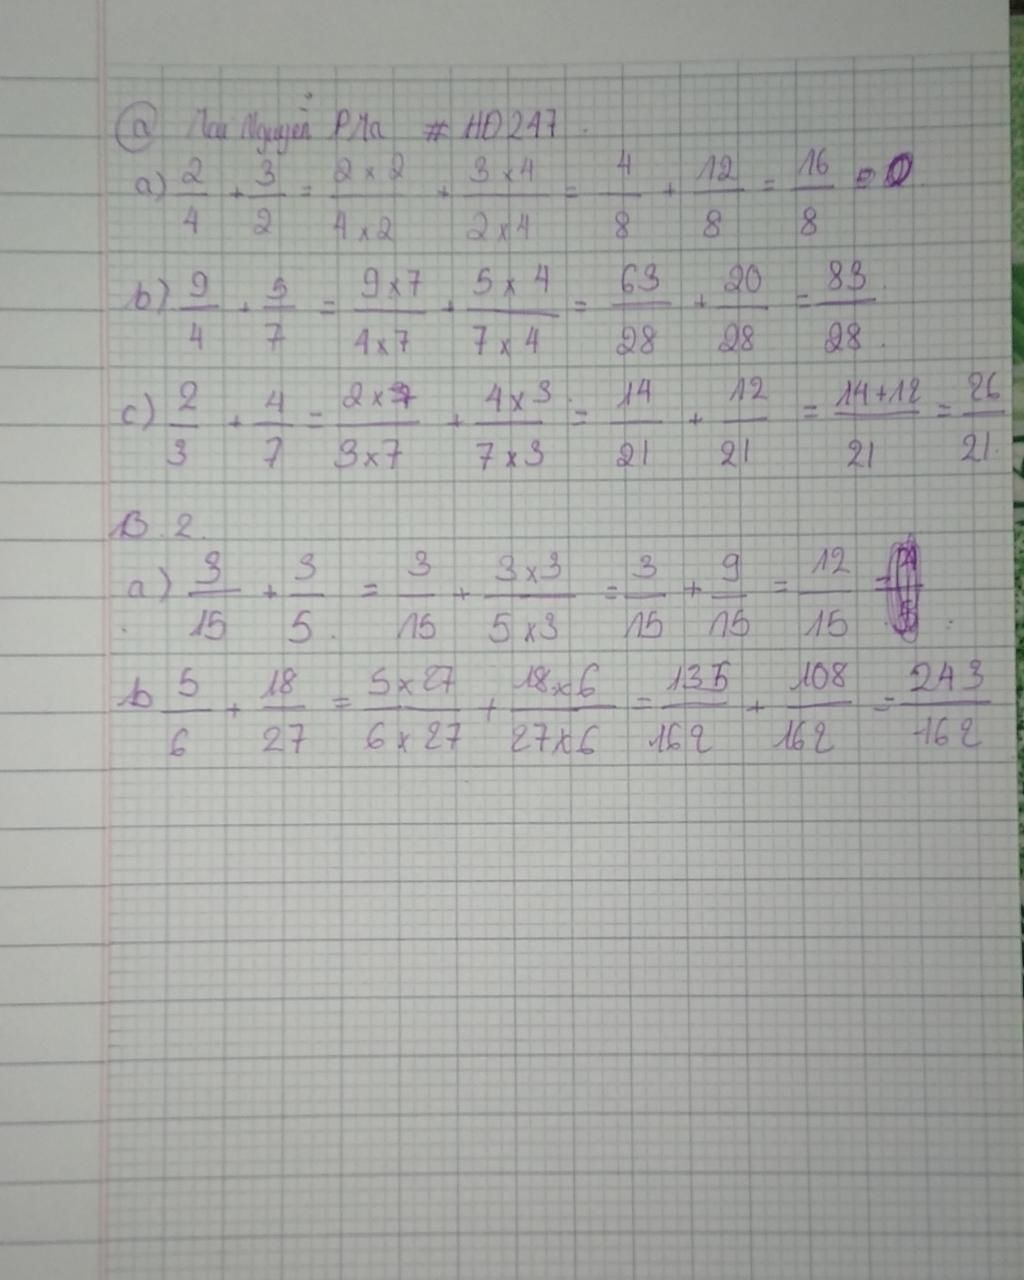 a Nguyễn # HD247.
a) 2/4 + 3/2 = 2 x 2/4 x 2 + 3 x 4/2 x 4 = 4/8 + 12/8 = 16/8 =
b) 9/4 + 5/7 = 9 x 7/4 x 7 + 5 x 4/7 x 4 = 63/28 + 20/28 = 83/28.
c) 2/3 + 4/7 = 2 x 7/3 x 7 + 4 x 3/7 x 3 = 14/21 + 12/21 = 14 + 12/21 = 26/21.
B. 2.
a) 3/15 + 3/5. = 3/15 + 3 x 3/5 x 3 = 3/15 + 9/15 = 12/15 =
b 5/6 + 18/27 = 5 x 27/6 x 27 + 18 x 6/27 x 6 = 135/162 + 108/162 = 243/162